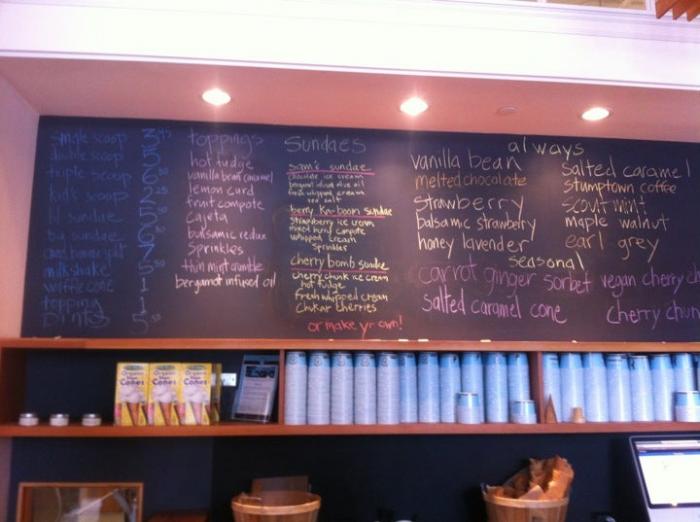 single scoop 3.45
double scoop 5
triple scoop 6
toppings
hot fudge
vanilla bean caramel
lemon curd
fruit compote
cajeta
balsamic redux
sprinkles
thin mint crumble
bergamot infused oil
milkshake
waffle cone 1
topping 1
pints
Sundaes
sam's sundae
chocolate ice cream
bergamot infused olive oil
fresh whipped cream
sea salt
berry ka-boom sundae
strawberry ice cream
mixed berry compote
whipped cream
sprinkles
cherry bomb sundae
cherry chunk ice cream
hot fudge
fresh whipped cream
chukar cherries
or make yr own!
always
vanilla bean
melted chocolate
strawberry
balsamic strawberry
honey lavender
salted caramel
stumptown coffee
scout mint
maple walnut
earl grey
seasonal
carrot ginger sorbet
vegan cherry ch
salted caramel cone
cherry chun
Organic
Cones
Organic
Cones
Organic
Cones